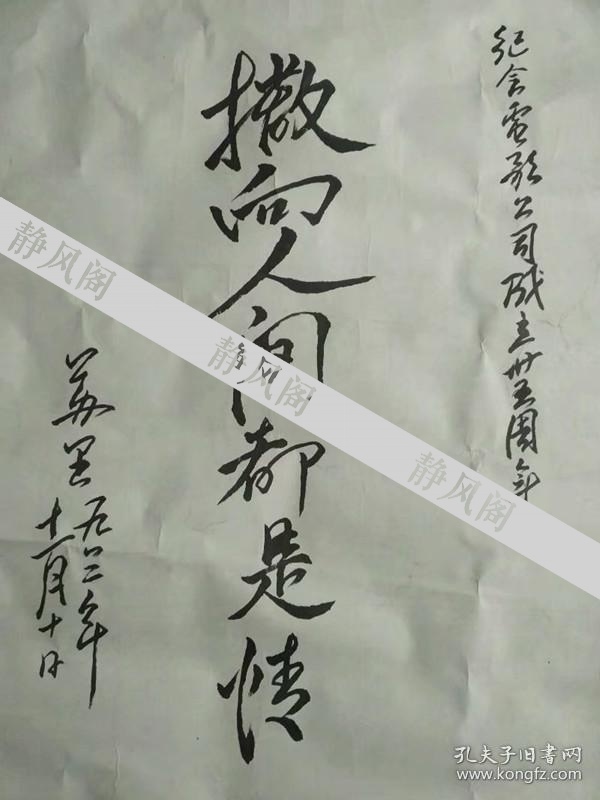 纪念電影公司成立卅五周年
撒向人间都是情
苏里 九二年
十一月十日
静风阁
静风阁
静风阁
孔夫子旧书网
www.kongfz.com